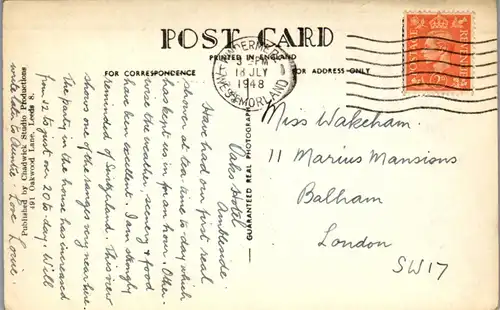 POST CARD
PRINTED IN ENGLAND
FOR CORRESPONDENCE
FOR ADDRESS ONLY
WINDERMERE
PM
18 JLY
1948
WESTMORLAND
POSTAGE
REVENUE
Vales Hotel
Ambleside.
Have had our first real
shower at tea-time to day which
has kept us in for an hour. Other-
wise the weather, scenery & food
have been excellent. I am strongly
reminded of Switzerland. This view
shows one of the ranges very near here.
The party in the house has increased
from 32 to just over 20 to day. Will
write later to Auntie. Love Louie.
Published by Chadwick Studio Productions
491 Oakwood Lane, Leeds 8.
GUARANTEED REAL PHOTOGRAPH
Miss Wakeham.
11 Marius Mansions
Balham
London
SW17